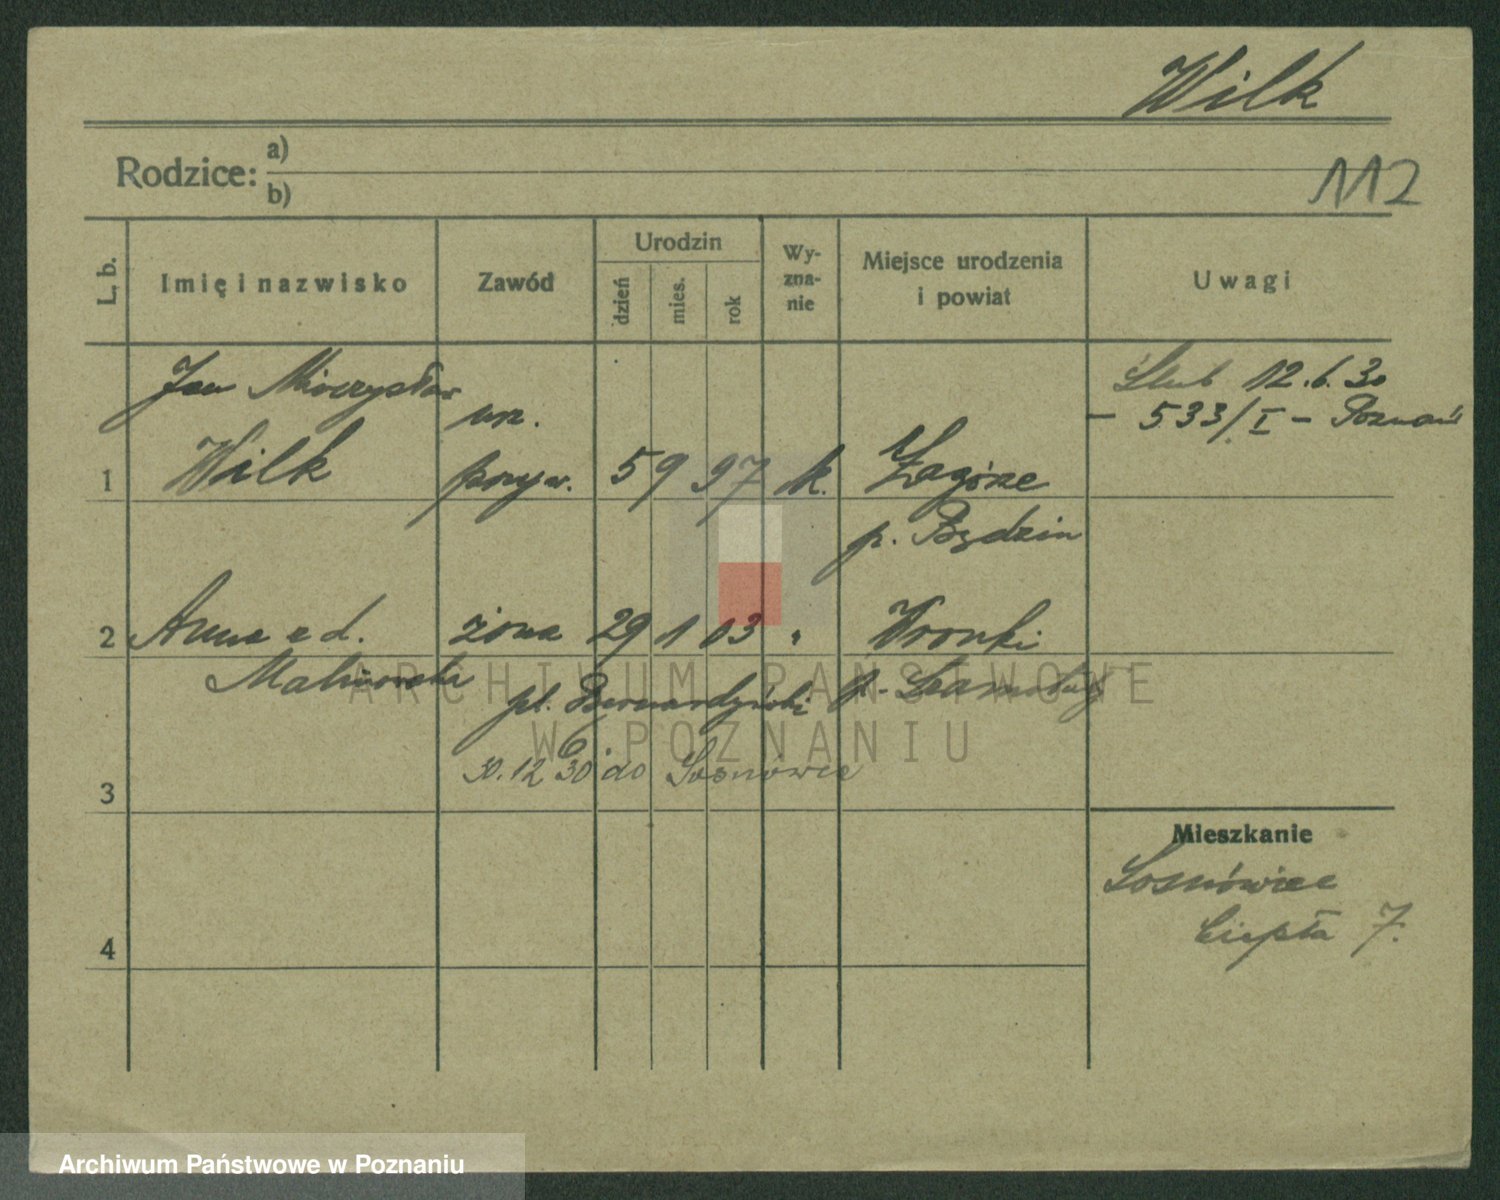 Wilk
Rodzice: a)
b)
112
L. b.
Imię i nazwisko
Zawód
Urodzin
dzień
mies.
rok
Wy-
zna-
nie
Miejsce urodzenia
i powiat
Uwagi
Jan Mieczysław
Wilk
urz.
pryw.
5 9 97 k.
Zagórze
p. Będzin
Ślub 12.6.30
- 533/I - Poznań
1
2
Anna z d.
Malinowska
żona
29 1 03 "
Wronki
p. Szamotuły
pl. Bernardyński
30.12 30 do Sosnówce
3
Mieszkanie
Sosnówiec
Ciepła 7.
4
ARCHIWUM PAŃSTWOWE
W POZNANIU
Archiwum Państwowe w Poznaniu